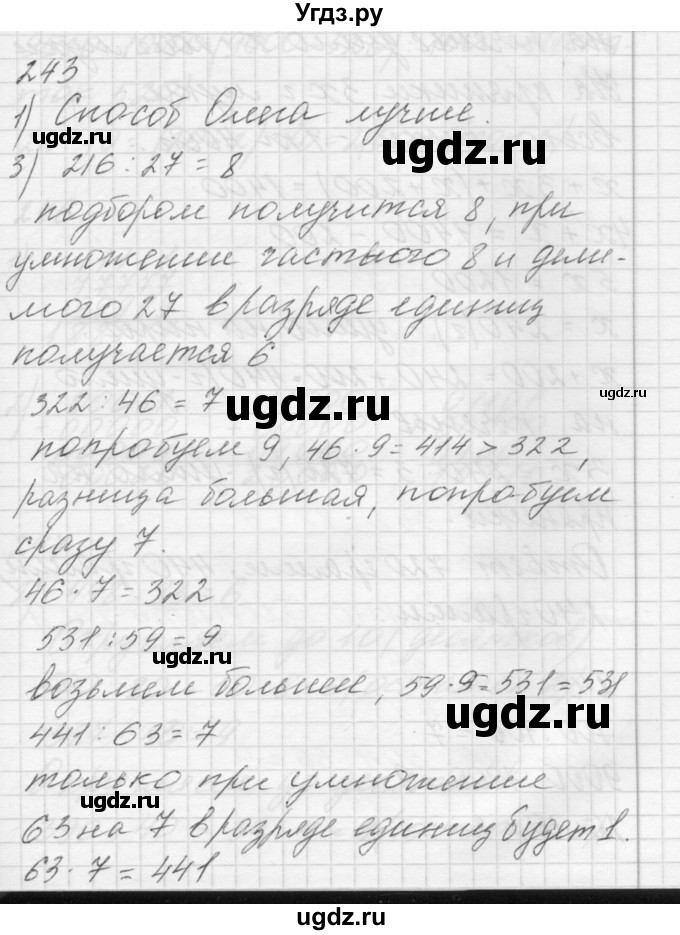 Угдз.ру
243
1) Способ Олега лучше.
ugdz.ru
ugdz.ru
3) 216 : 27 = 8
подбором получится 8, при
умножении частного 8 и дели-
мого 27 в разряде единиц
получается 6
ugdz.ru
322 : 46 = 7
ugdz.ru
попробуем 9, 46 · 9 = 414 > 322,
разница большая, попробуем
сразу 7.
46 · 7 = 322
531 : 59 = 9
ugdz.ru
возьмем большее, 59 · 9 = 531 = 531
ugdz.ru
441 : 63 = 7
только при умножение
ugdz.ru
63 на 7 в разряде единиц будет 1.
63 · 7 = 441
ugdz.ru